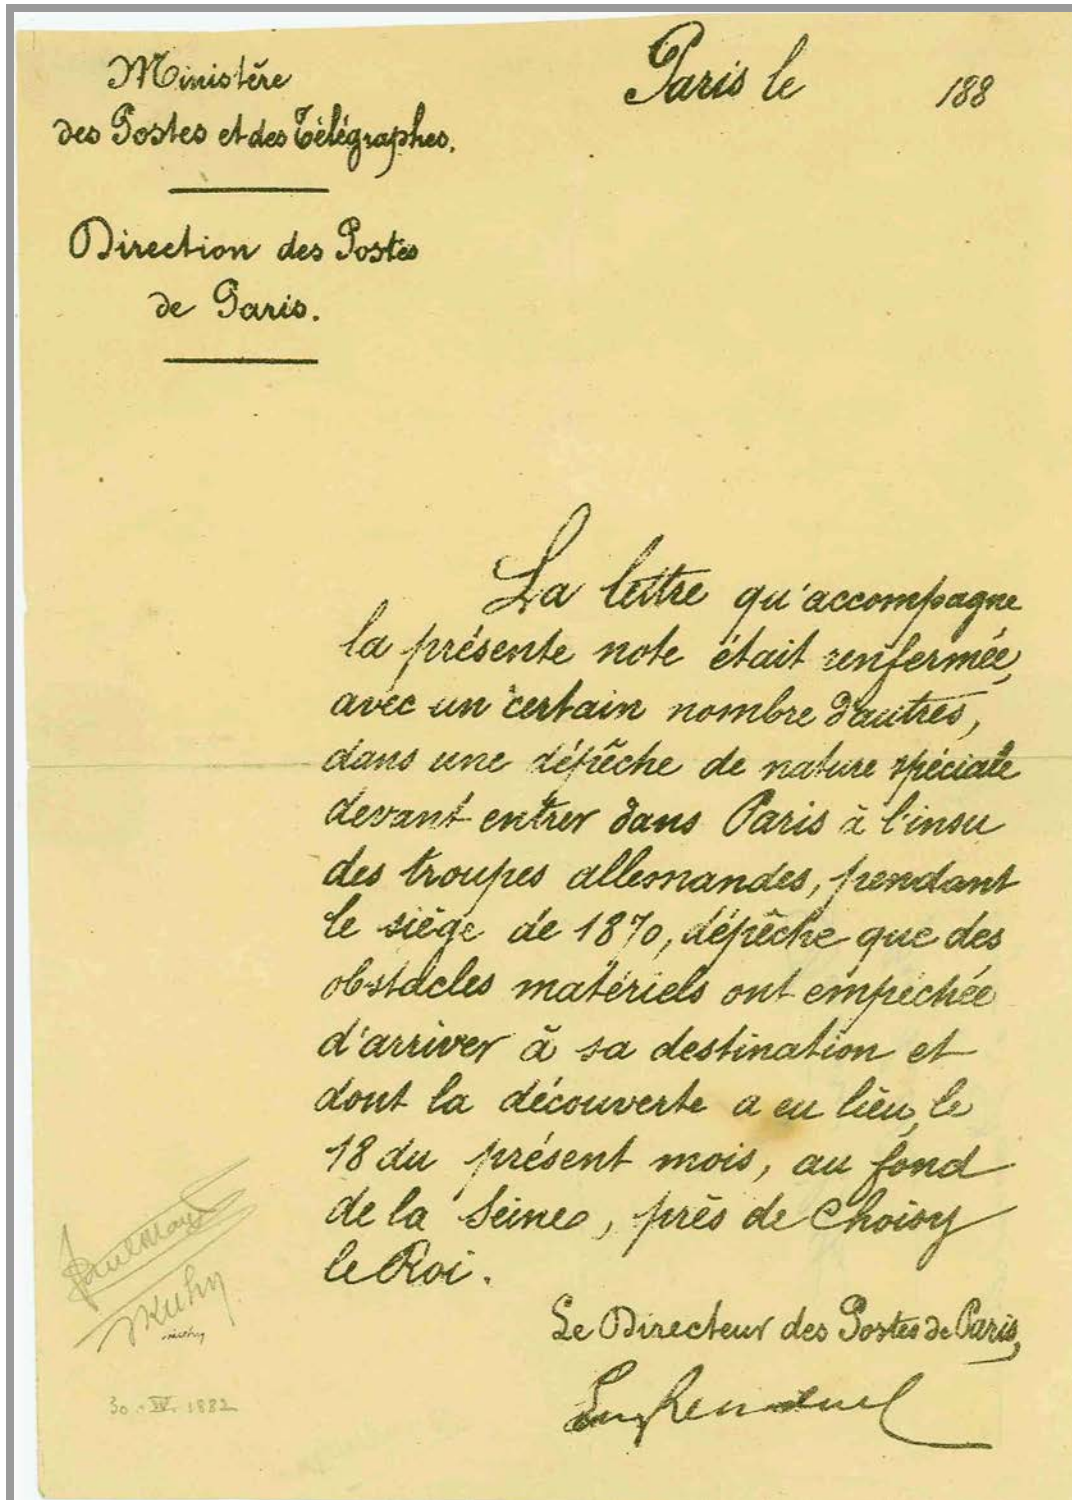 Ministère
des Postes et des Télégraphes.
Paris le 188
Direction des Postes
de Paris.
La lettre qu'accompagne
la présente note était renfermée,
avec un certain nombre d'autres,
dans une dépêche de nature spéciale
devant entrer dans Paris à l'insu
des troupes allemandes, pendant
le siège de 1870, dépêche que des
obstacles matériels ont empêchée
d'arriver à sa destination et
dont la découverte a eu lieu, le
18 du présent mois, au fond
de la Seine, près de Choisy
le Roi.
Le Directeur des Postes de Paris,
Kuhn
30 . IV. 1882